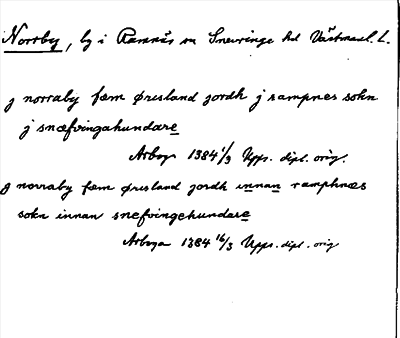 Norrby, by i Ramnäs sn Snevringe hd Västmanl. l.
j norraby fæm ørisland jordh j rampnes sokn
j snæfvingahundare
Arboga 1384 1/3 Upps. dipl. orig.
j norraby fæm ørisland jordh innan ramphnæs
sokn innan snefvingehundare
Arboga 1384 16/3 Upps. dipl. orig